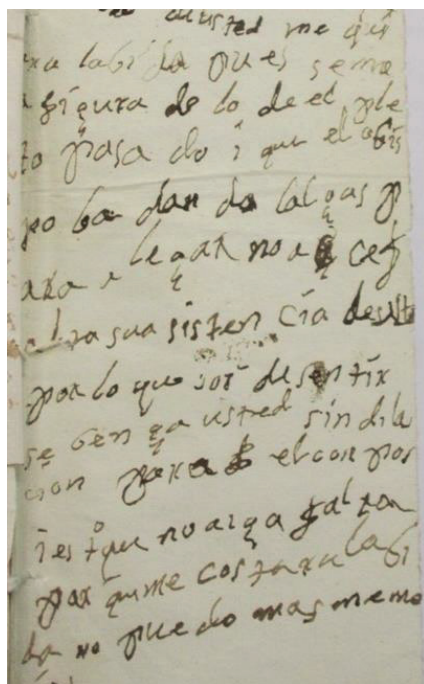 de austed me qui
ra labida pues seme
figura de lo de el ple
to pasa do i que el obis
po ba dan do lalgas p
ara a legar no a cef
sua sisten cia
por lo que soi de sen tir
se ben ga usted sin dila
cion para el con pos
i es to que no aiga falta
por qu me cos tara la bi
da no pue do mas memo